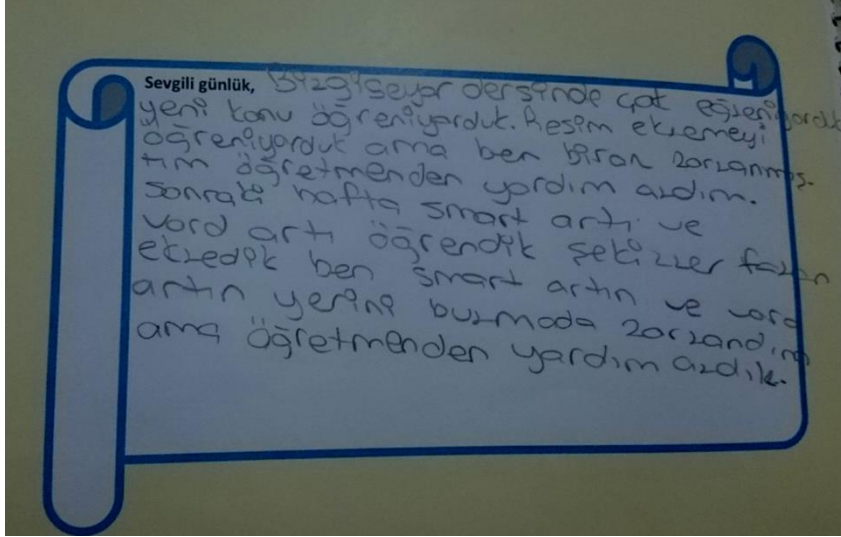 Sevgili günlük, Bizgiseyar dersinde çok eğreniyorduk
yeni konu öğreniyorduk. Resim ekzemeyi
öğreniyorduk ama ben biraz zorzanmış-
tım öğretmenden yardım azdım.
Sonraki hafta smart artı ve
vord artı öğrendik şekizzer fazan
ekzedik ben smart artın ve vord
artın yerini buzmada zorzandım
ama öğretmenden yardım azdık.